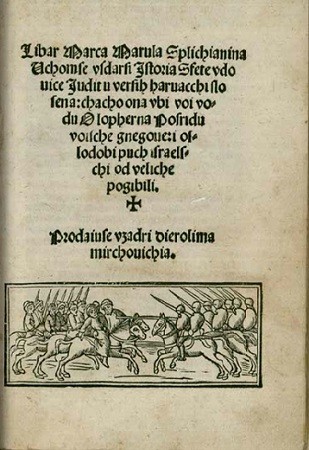 Libar Marca Marula Splichianina
Uchomse usdarsi Istoria Sfete udo
vice Judit u versih haruacchi slo
sena: chacho ona ubi voi vo-
du Olopherna Posridu
voische gnegove: i os-
lodobi puch israels-
chi od veliche
pogibili.
✠
Prodaiuse uzadri dierolima
mirchovichia.